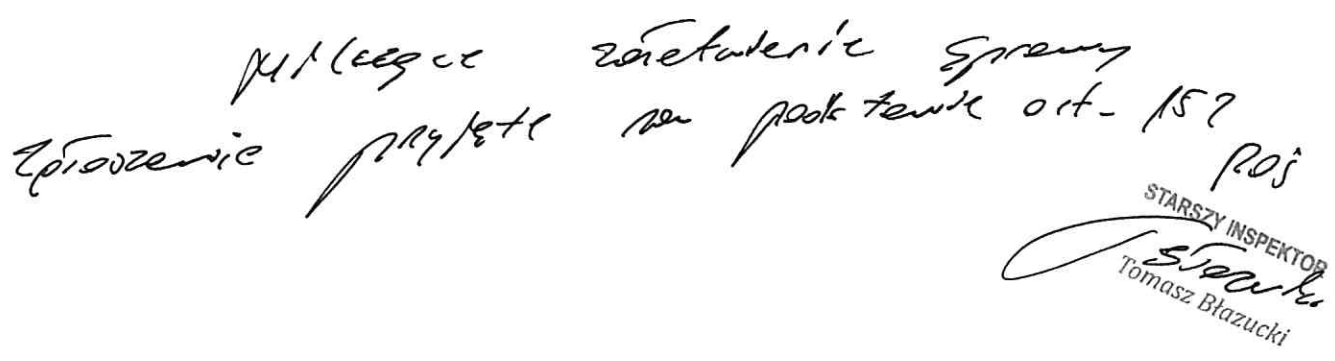 milczące załatwienie sprawy
zgłoszenie przyjęte na podstawie art. 152
poś
STARSZY INSPEKTOR
Tomasz Błazucki